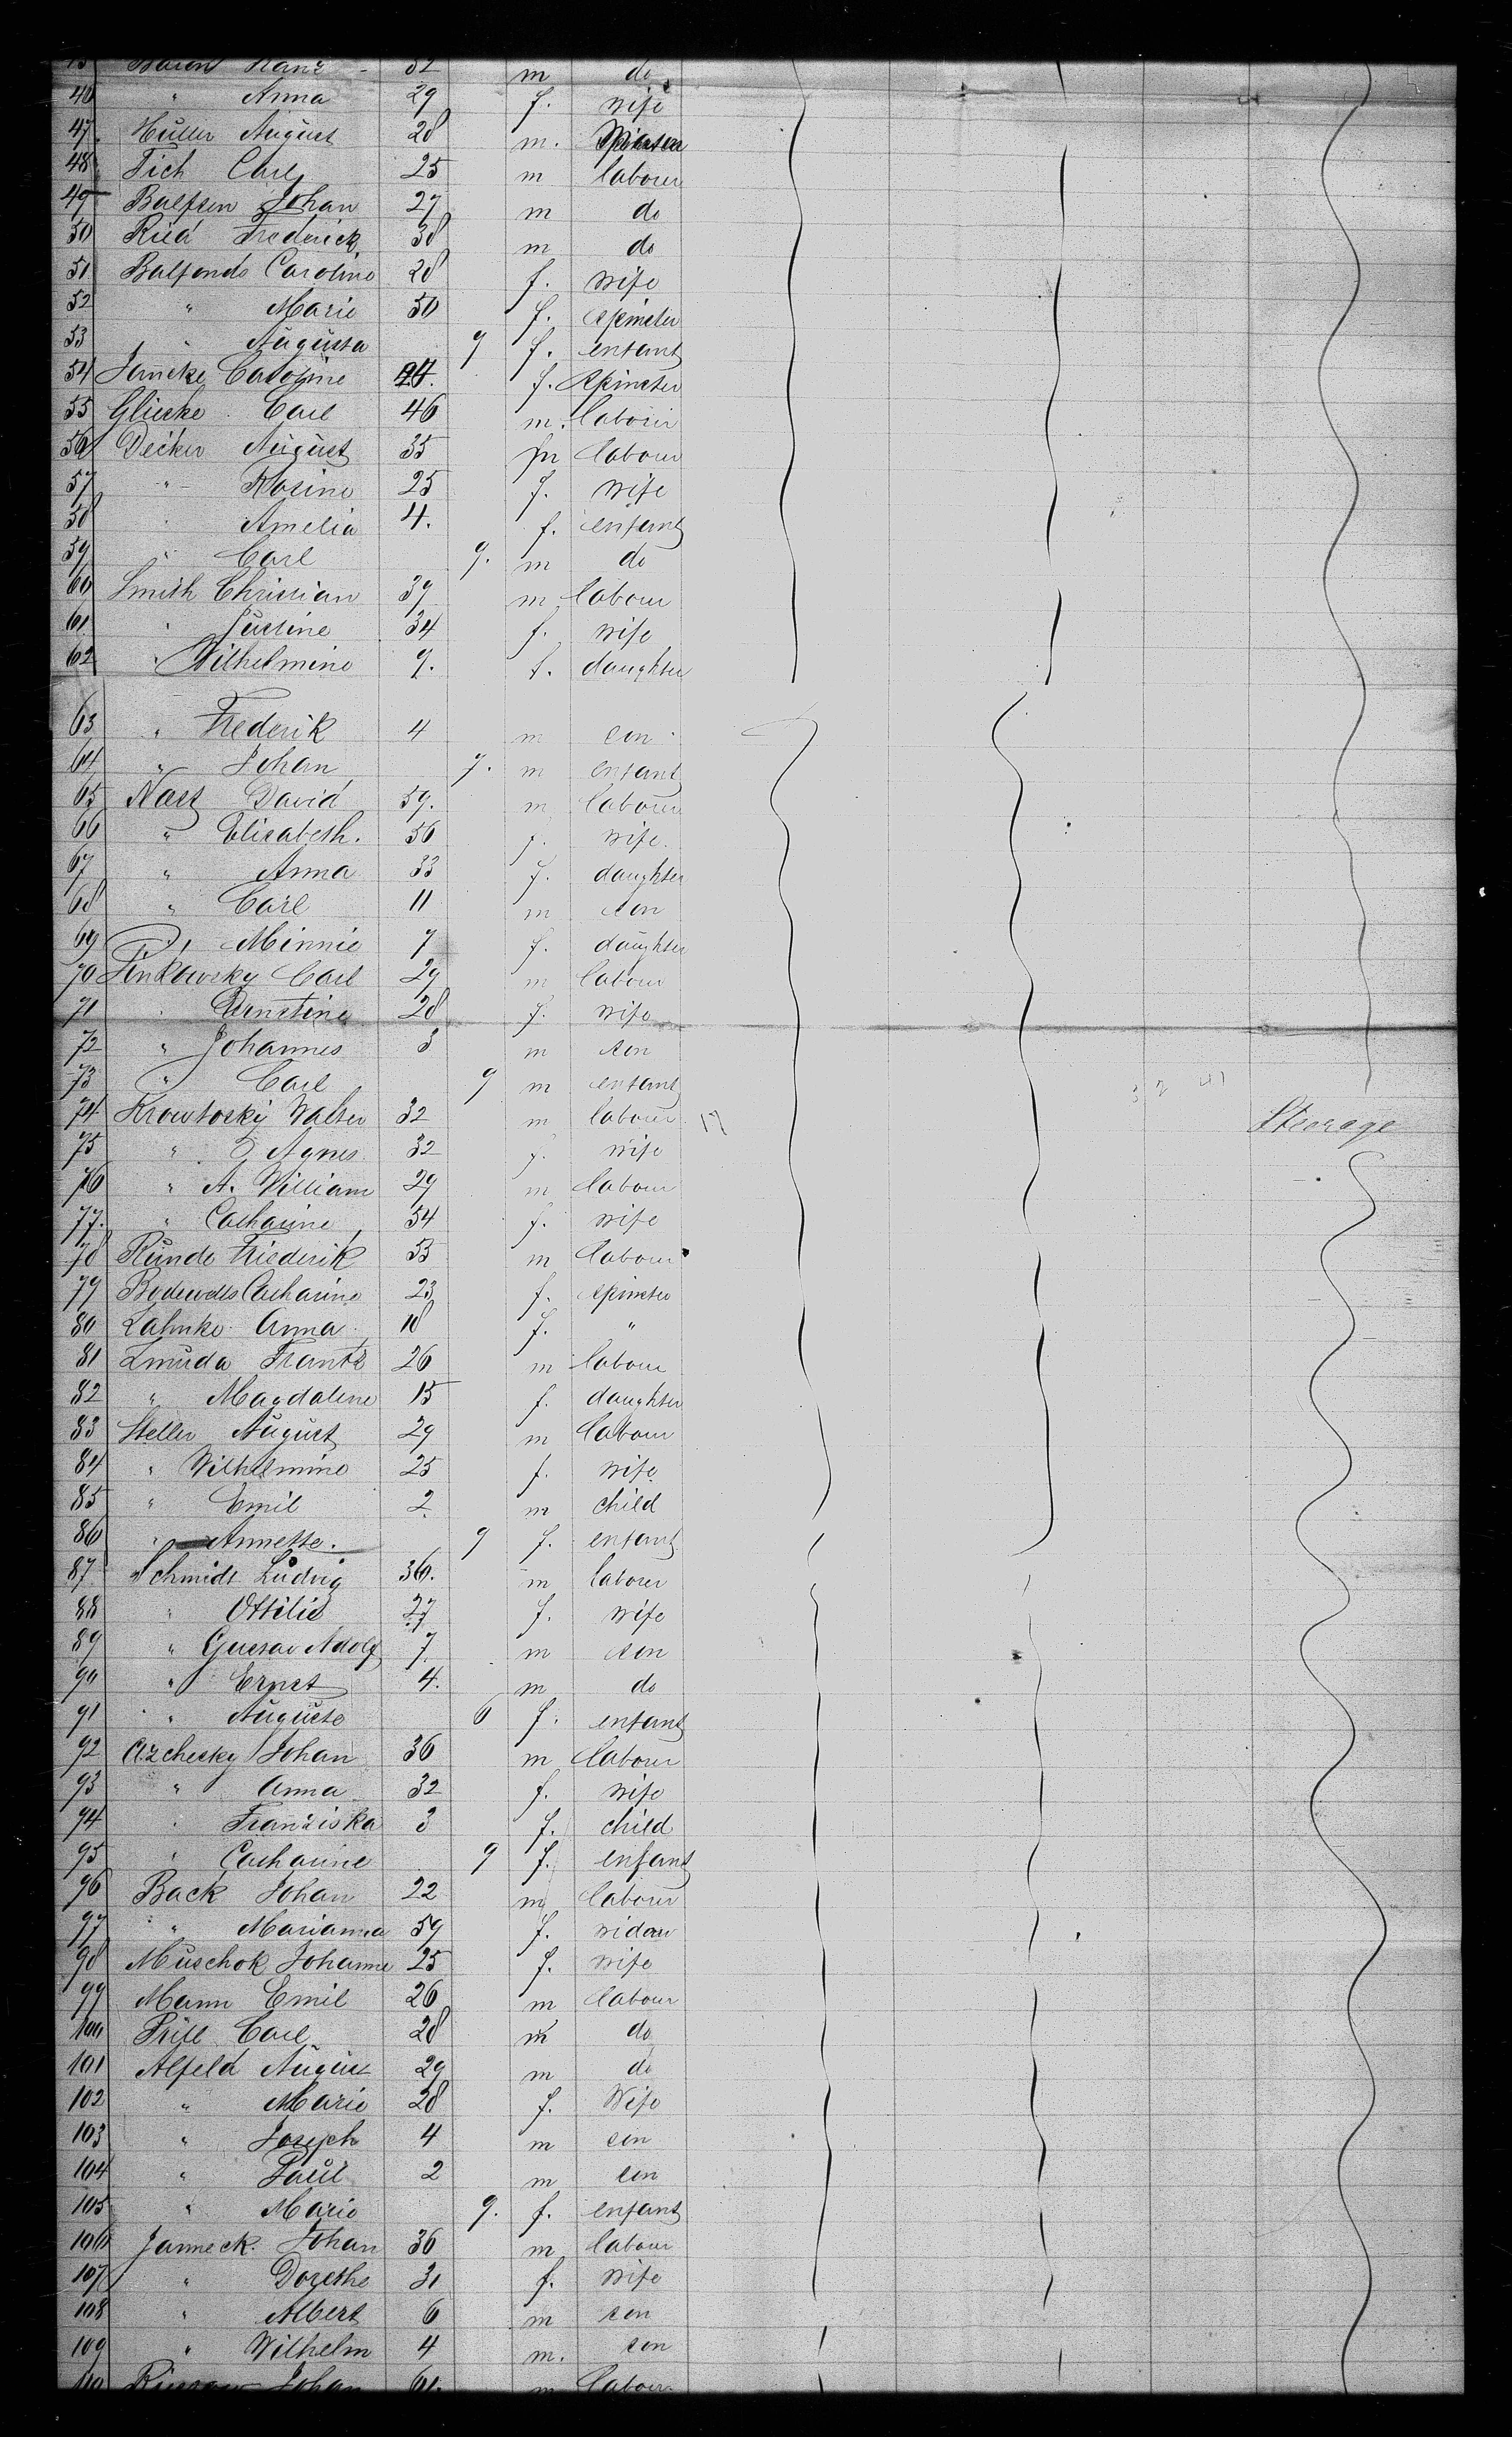 Hans 32 m do
46 " Anna 29 f. wife
47 Huller August 28 m.
48 Tich Carl 25 m labour
49 Balfsen Johan 27 m do
50 Ried Frederick 38 m do
51 Balfonds Caroline 28 f. wife
52 " Marie 50 f. spinster
53 " Augusta 9 f. enfant
54 Jancke Caroline 24. f. spinster
55 Gliecke Carl 46 m. labour
56 Decker August 35 m labour
57 " Rosine 25 f. wife
58 " Amelia 4. f. enfant
59 " Carl 9. m do
60 Smith Christian 39 m labour
61 " Justine 34 f. wife
62 " Wilhelmine 9. f. daughter
63 " Frederik 4 m son
64 " Johan 9. m enfant
65 Nass David 59. m labour
66 " Elisabeth. 56 f. wife.
67 " Anna 33 f. daughter
68 " Carl 11 m son
69 " Minnie 7 f. daughter
70 Pinkowsky Carl 29 m labour
71 " Ernstine 28 f. wife
72 " Johannes 3 m son
73 " Carl 9 m enfant
74 Krowtosky Walter 32 m labour 17 Steerage
75 " Agnes 32 f. wife
76 " A. William 29 m labour
77. " Catharine 54 f. wife
78 Runde Friederik 55 m labour
79 Catharine 23 f. spinster
80 Lahnke Anna 18 f. "
81 Zmuda Frantz 26 m labour
82 " Magdalene 15 f. daughter
83 Steller August 29 m labour
84 " Wilhelmine 25 f. wife
85 " Emil 2 m child
86 " Annette. 9 f. enfant
87 Schmidt Ludvig 36. m labour
88 " Ottilie 27 f. wife
89 " Gustav Adolf 7 m son
90 " Ernst 4. m do
91 " Auguste 6 f. enfant
92 Azchesky Johan 36 m labour
93 " Anna 32 f. wife
94 " Franziska 3 f. child
95 " Catharine 9 f. enfant
96 Back Johan 22 m labour
97 " Marianna 59 f. widow
98 Muschok Johanne 25 f. wife
99 Mann Emil 26 m labour
100 Prill Carl 28 m do
101 Alfeld August 29 m do
102 " Marie 28 f. Wife
103 " Joseph 4 m son
104 " Paul 2 m son
105 " Marie 9. f. enfant
106 Janneck. Johan 36 m labour
107 " Dorethe 31 f. wife
108 " Albert 6 m son
109 " Wilhelm 4 m. son
110 Johan 61. m labour